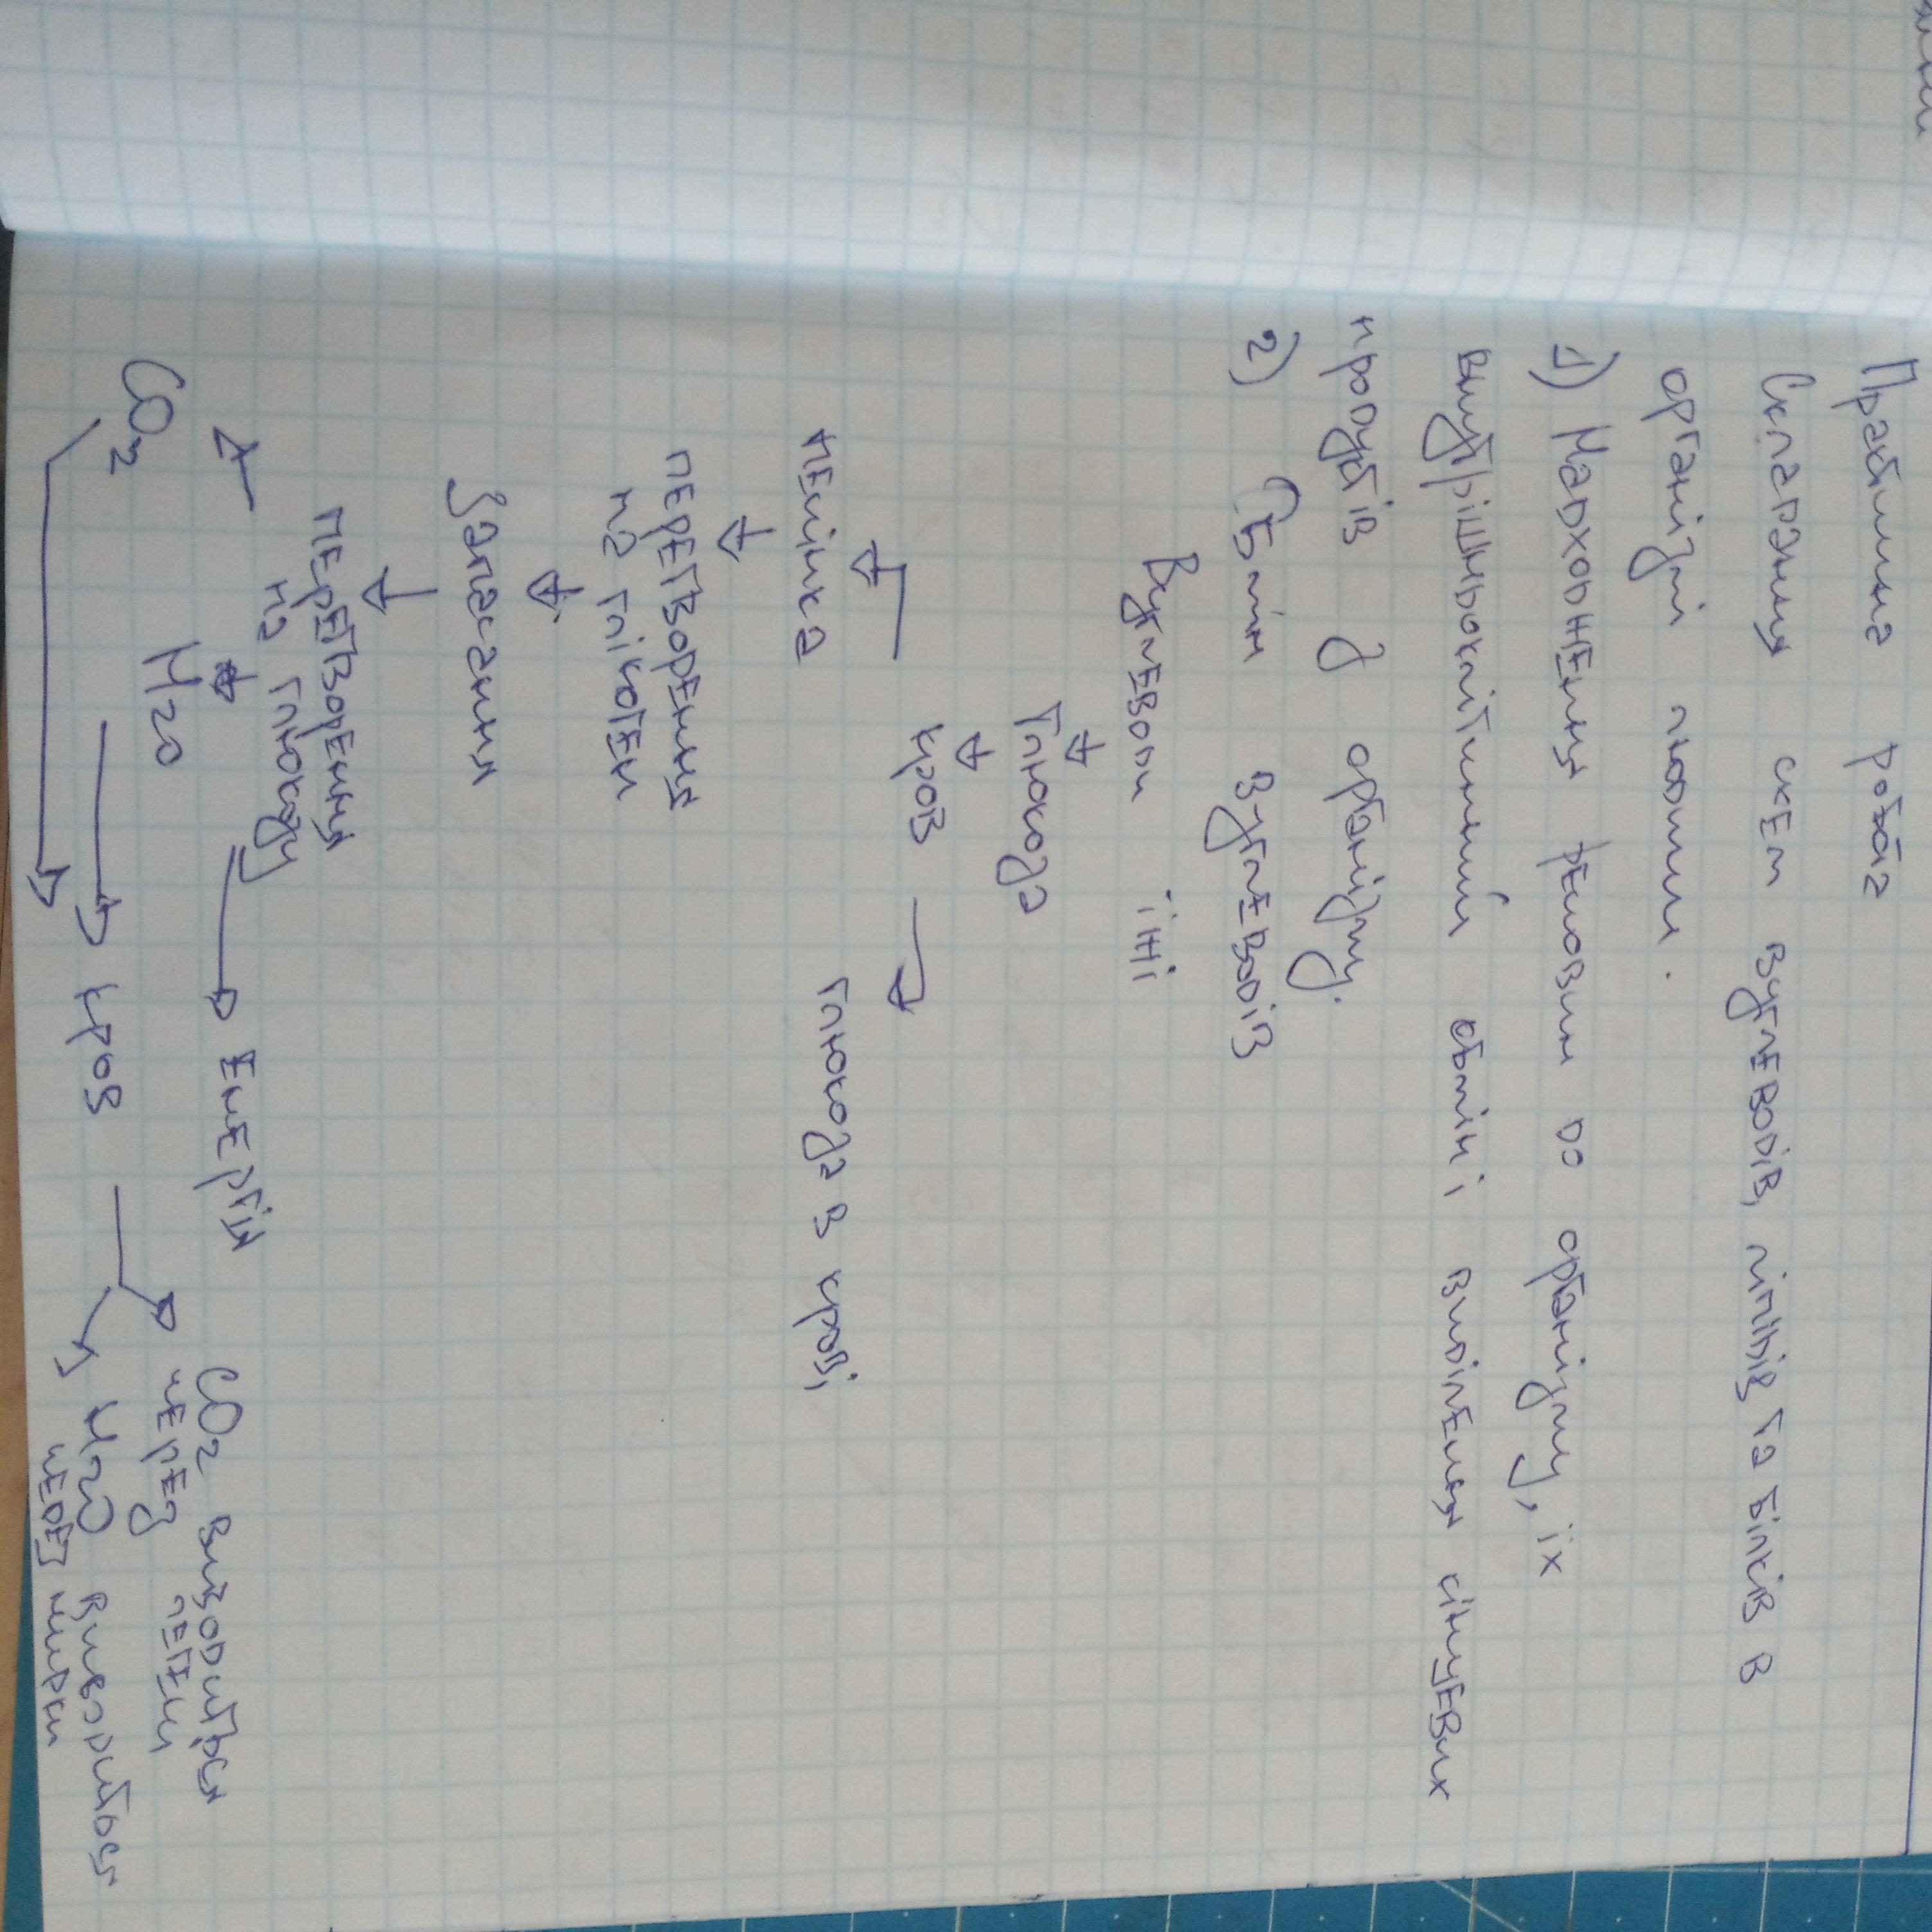 Практична робота
Складання схем вуглеводів, ліпідів та білків в
організмі людини.
1) Надходження речовин до організму, їх
внутрішньоклітинний обмін і виділення кінцевих
продуктів з організму.
2) Обмін вуглеводів
Вуглеводи їжі
Глюкоза
кров
печінка
глюкоза в крові
перетворення
на глікоген
запасання
перетворення
на глюкозу
Енергія
CO2
H2O
кров
CO2 виводиться
через легени
H2O виводиться
через нирки